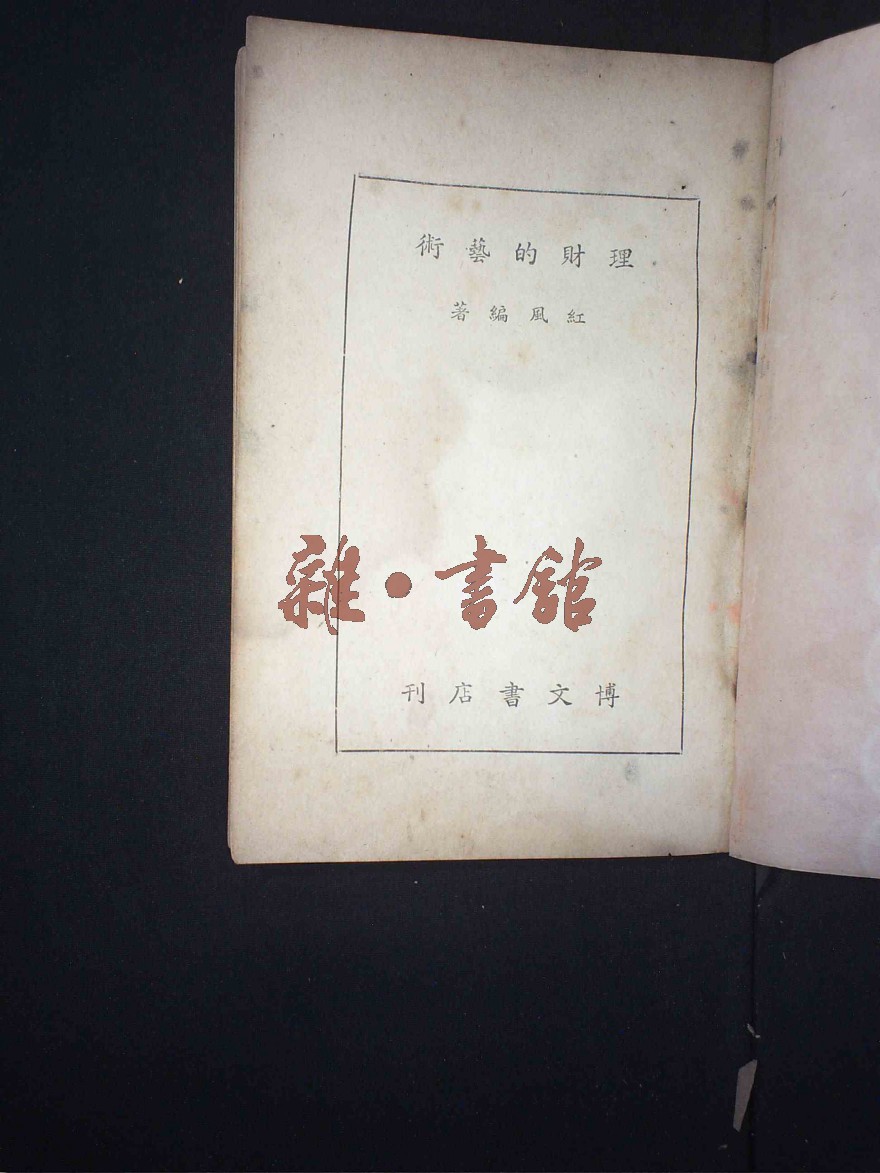 理財的藝術
紅風編著
雜·書館
博文書店刊